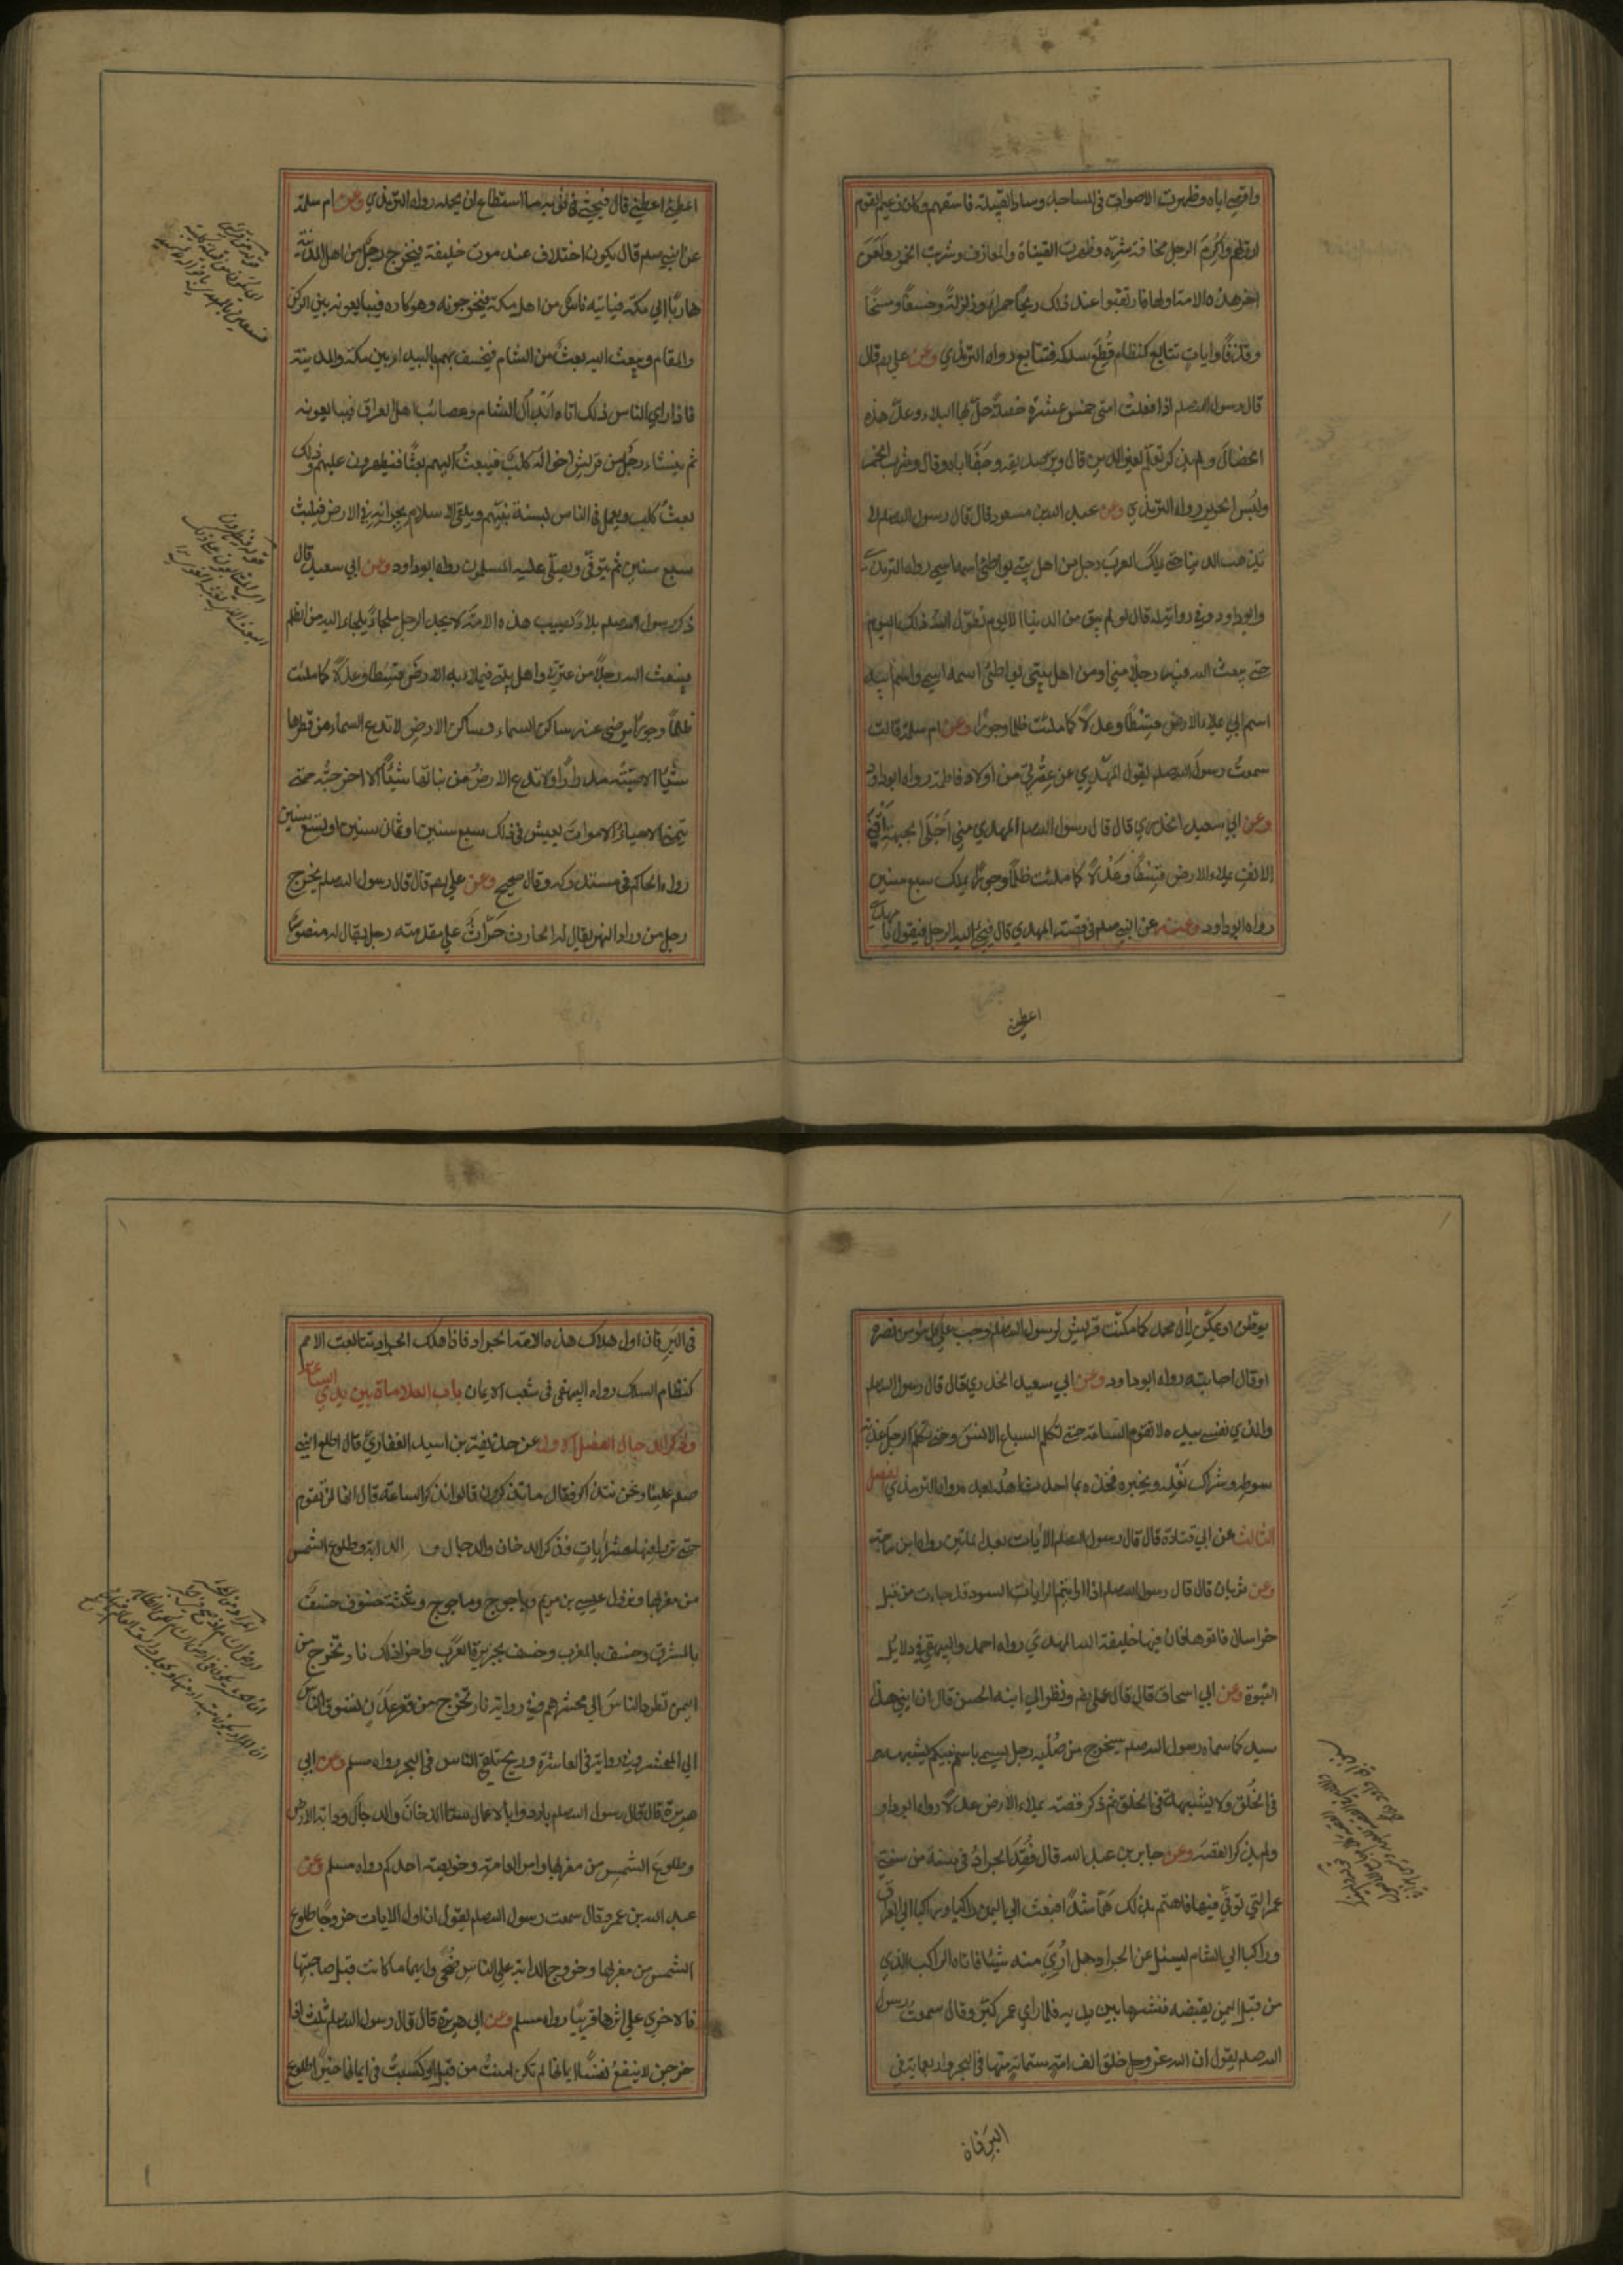 واقصى اباه وظهرت الاصوات فى المساجد وساد القبيلة فاسقهم وكان زعيم القوم
ارذلهم واكرم الرجل مخافة شره وظهرت القينات والمعازف وشربت الخمور ولعن
اخر هذه الامة اولها فارتقبوا عند ذلك ريحًا حمراء وزلزلة وخسفًا ومسخًا
وقذفًا وايات تتابع كنظام قطع سلكه فتتابع رواه الترمذي وعن علي رضم قال
قال رسول الله صلعم اذا فعلت امتى خمس عشرة خصلة حل بها البلاء وعد هذه
الخصال ولم يذكر تعلم لغير الدين قال وبر صديقه وجفا اباه وقال وشرب الخمر
ولبس الحرير رواه الترمذي وعن عبد الله بن مسعود قال قال رسول الله صلعم لا
تذهب الدنيا حتى يملك العرب رجل من اهل بيتى يواطئ اسمه اسمي رواه الترمذي
وابو داود وفي رواية له قال لو لم يبق من الدنيا الا يوم لطول الله ذلك اليوم
حتى يبعث الله فيه رجلا مني او من اهل بيتى يواطئ اسمه اسمي واسم ابيه
اسم ابي يملاء الارض قسطًا وعدلاً كما ملئت ظلما وجورًا وعن ام سلمة قالت
سمعت رسول الله صلعم يقول المهدي من عترتي من اولاد فاطمة رواه ابو داود
وعن ابي سعيد الخدري قال قال رسول الله صلعم المهدي مني اجلى الجبهة اقنى
الانف يملاء الارض قسطًا وعدلاً كما ملئت ظلمًا وجورًا يملك سبع سنين
رواه ابو داود وعنه عن النبي صلعم فى قصة المهدي قال فيجئ اليه الرجل فيقول يا مهدي
اعطني
اعطني اعطني قال فيحثى له فى ثوبه ما استطاع ان يحمله رواه الترمذي وعن ام سلمة
عن النبي صلعم قال يكون اختلاف عند موت خليفة فيخرج رجل من اهل المدينة
هاربًا الي مكة فياتيه ناس من اهل مكة فيخرجونه وهو كاره فيبايعونه بين الركن
والمقام ويبعث اليه بعث من الشام فيخسف بهم بالبيداء بين مكة والمدينة
فاذا راي الناس ذلك اتاه ابدال الشام وعصائب اهل العراق فيبايعونه
ثم ينشاء رجل من قريش اخواله كلب فيبعث اليهم بعثًا فيظهرون عليهم وذلك
بعث كلب ويعمل فى الناس بسنة نبيهم ويلقى الاسلام بجرانه في الارض فيلبث
سبع سنين ثم يتوفى ويصلى عليه المسلمون رواه ابو داود وعن ابي سعيد قال
ذكر رسول الله صلعم بلاء يصيب هذه الامة حتى لا يجد الرجل ملجاء يلجاء اليه من الظلم
فيبعث الله رجلاً من عترتي واهل بيتى فيملاء به الارض قسطًا وعدلاً كما ملئت
ظلمًا وجورًا يرضى عنه ساكن السماء وساكن الارض لا تدع السماء من قطرها
شيئًا الا صبته مدرارًا ولا تدع الارض من نباتها شيئًا الا اخرجته حتى
يتمنى الاحياء الاموات يعيش فى ذلك سبع سنين او ثمان سنين او تسع سنين
رواه الحاكم فى مستدركه وقال صحيح وعن علي رضم قال قال رسول الله صلعم يخرج
رجل من وراء النهر يقال له الحارث حراث على مقدمته رجل يقال له منصور
يوطن او يمكن لآل محمد كما مكنت قريش لرسول الله صلعم وجب على كل مؤمن نصره
او قال اجابته رواه ابو داود وعن ابي سعيد الخدري قال قال رسول الله صلعم
والذي نفسى بيده لا تقوم الساعة حتى تكلم السباع الانس وحتى تكلم الرجل عذبة
سوطه وشراك نعله ويخبره فخذه بما احدث اهله بعده رواه الترمذي الفصل
الثالث عن ابي قتادة قال قال رسول الله صلعم الايات بعد المائتين رواه ابن ماجة
وعن ثوبان قال قال رسول الله صلعم اذا رايتم الرايات السود قد جاءت من قبل
خراسان فاتوها فان فيها خليفة الله المهدي رواه احمد والبيهقي فى دلائل
النبوة وعن ابي اسحاق قال قال علي رضم ونظر الي ابنه الحسن قال ان ابني هذا
سيد كما سماه رسول الله صلعم سيخرج من صلبه رجل يسمى باسم نبيكم يشبهه
فى الخلق ولا يشبهه فى الخلق ثم ذكر قصة يملاء الارض عدلاً رواه ابو داود
ولم يذكر القصة وعن جابر بن عبد الله قال فقد الجراد فى سنة من سنى
عمر التي توفي فيها فاهتم بذلك همًا شديدًا فبعث الي اليمن راكبا وراكبا الي العراق
وراكبا الي الشام يسئل عن الجراد هل اري منه شيئا فاتاه الراكب الذي
من قبل اليمن بقبضة فنثرها بين يديه فلما راي عمر كبر وقال سمعت رسول
الله صلعم يقول ان الله عز وجل خلق الف امة ستمائة منها فى البحر واربعماية فى
البر فان
فى البر فان اول هلاك هذه الامة الجراد فاذا هلك الجراد تتابعت الامم
كنظام السلك رواه البيهقى فى شعب الايمان باب العلامات بين يدي الساعة
وذكر الدجال الفصل الاول عن حذيفة بن اسيد الغفاري قال اطلع النبى
صلعم علينا ونحن نتذاكر فقال ما تذكرون قالوا نذكر الساعة قال انها لن تقوم
حتى تروا قبلها عشر ايات فذكر الدخان والدجال والدابة وطلوع الشمس
من مغربها ونزول عيسى بن مريم وياجوج وماجوج وثلثة خسوف خسف
بالمشرق وخسف بالمغرب وخسف بجزيرة العرب واخر ذلك نار تخرج من
اليمن تطرد الناس الي محشرهم وفي رواية نار تخرج من قعر عدن تسوق الناس
الي المحشر وفي رواية فى العاشرة وريح تلقى الناس فى البحر رواه مسلم وعن ابي
هريرة قال قال رسول الله صلعم بادروا بالاعمال ستا الدخان والدجال ودابة الارض
وطلوع الشمس من مغربها وامر العامة وخويصة احدكم رواه مسلم وعن
عبد الله بن عمرو قال سمعت رسول الله صلعم يقول ان اول الايات خروجًا طلوع
الشمس من مغربها وخروج الدابة علي الناس ضحى وايهما ما كانت قبل صاحبتها
فالاخري علي اثرها قريبًا رواه مسلم وعن ابي هريرة قال قال رسول الله صلعم ثلث اذا
خرجن لا ينفع نفسًا ايمانها لم تكن امنت من قبل او كسبت فى ايمانها خيرًا طلوع